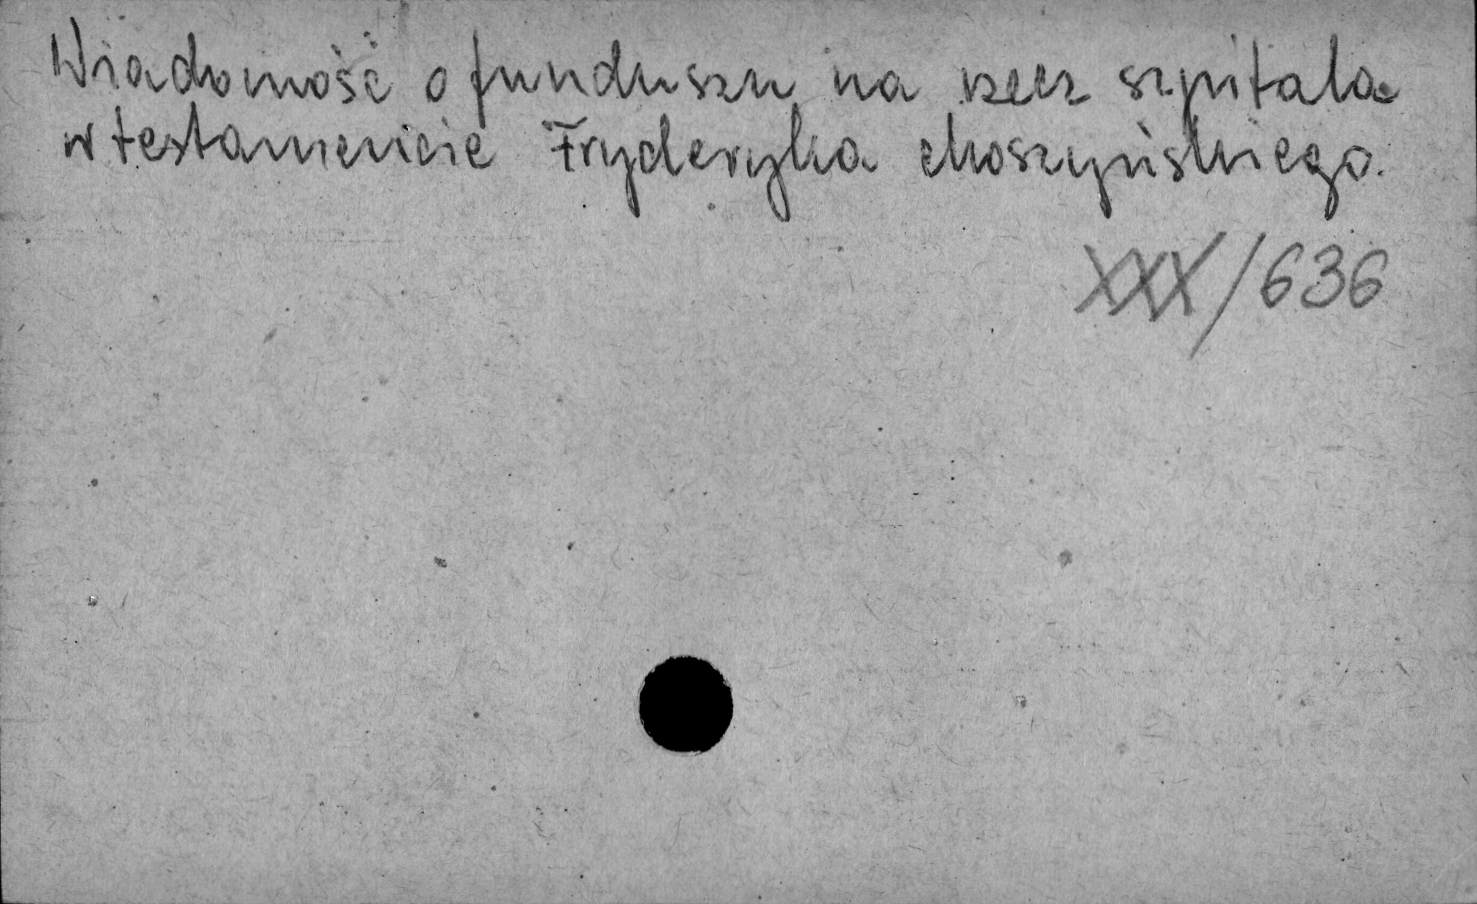 Wiadomość o funduszu na rzecz szpitala
w testamencie Fryderyka Choszyńskiego.
XXX/636